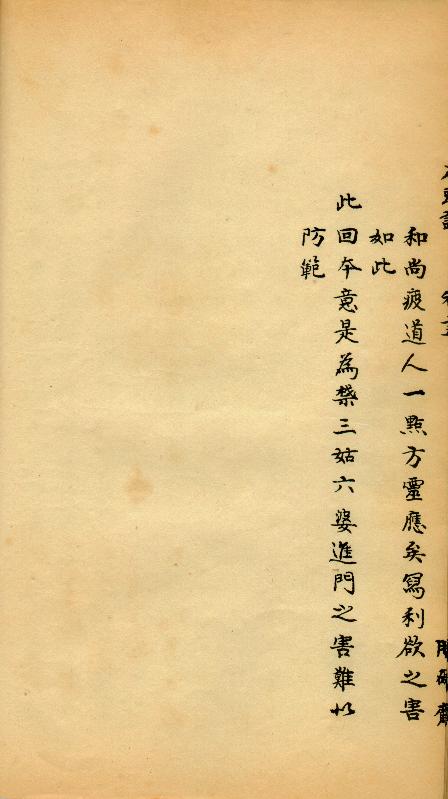 和尚疲道人一點方靈應矣寫利欲之害
如此
此回本意是為禁三姑六婆進門之害難以
防範